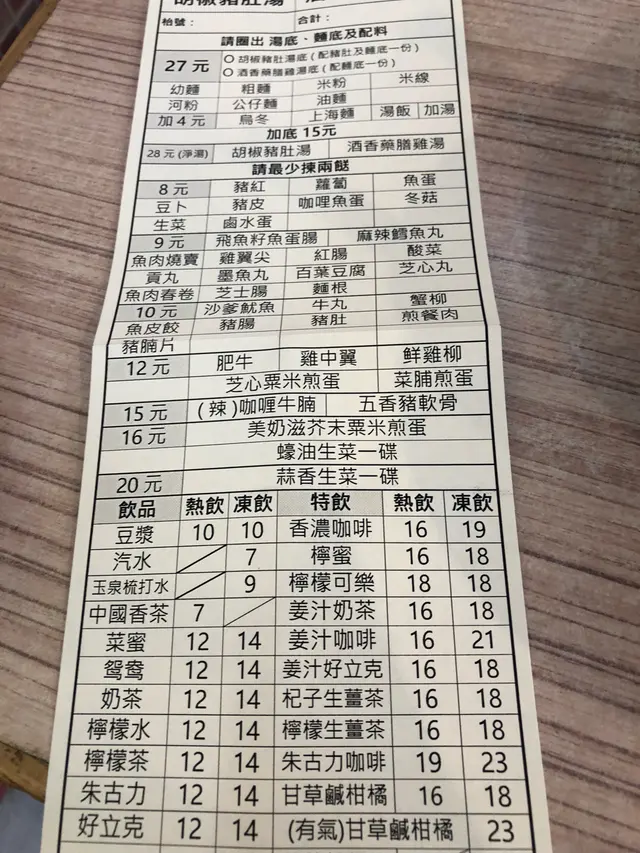 胡椒豬肚湯
枱號： 合計：
請圈出 湯底、麵底及配料
27 元 胡椒豬肚湯底（配豬肚及麵底一份）
酒香藥膳雞湯底（配麵底一份）
幼麵 粗麵 米粉 米線
河粉 公仔麵 油麵
加 4 元 烏冬 上海麵 湯飯 加湯
加底 15元
28 元 (淨湯) 胡椒豬肚湯 酒香藥膳雞湯
請最少揀兩餸
8 元 豬紅 蘿蔔 魚蛋
豆卜 豬皮 咖哩魚蛋 冬菇
生菜 鹵水蛋
9 元 飛魚籽魚蛋腸 麻辣鱈魚丸
魚肉燒賣 雞翼尖 紅腸 酸菜
貢丸 墨魚丸 百葉豆腐 芝心丸
魚肉春卷 芝士腸 麵根
10 元 沙爹魷魚 牛丸 蟹柳
魚皮餃 豬腸 豬肚 煎餐肉
豬腩片
12 元 肥牛 雞中翼 鮮雞柳
芝心粟米煎蛋 菜脯煎蛋
15 元 (辣)咖喱牛腩 五香豬軟骨
16 元 美奶滋芥末粟米煎蛋
蠔油生菜一碟
20 元 蒜香生菜一碟
飲品 熱飲 凍飲 特飲 熱飲 凍飲
豆漿 10 10 香濃咖啡 16 19
汽水 7 檸蜜 16 18
玉泉梳打水 9 檸檬可樂 18 18
中國香茶 7 姜汁奶茶 16 18
菜蜜 12 14 姜汁咖啡 16 21
鴛鴦 12 14 姜汁好立克 16 18
奶茶 12 14 杞子生薑茶 16 18
檸檬水 12 14 檸檬生薑茶 16 18
檸檬茶 12 14 朱古力咖啡 19 23
朱古力 12 14 甘草鹹柑橘 16 18
好立克 12 14 (有氣)甘草鹹柑橘 23